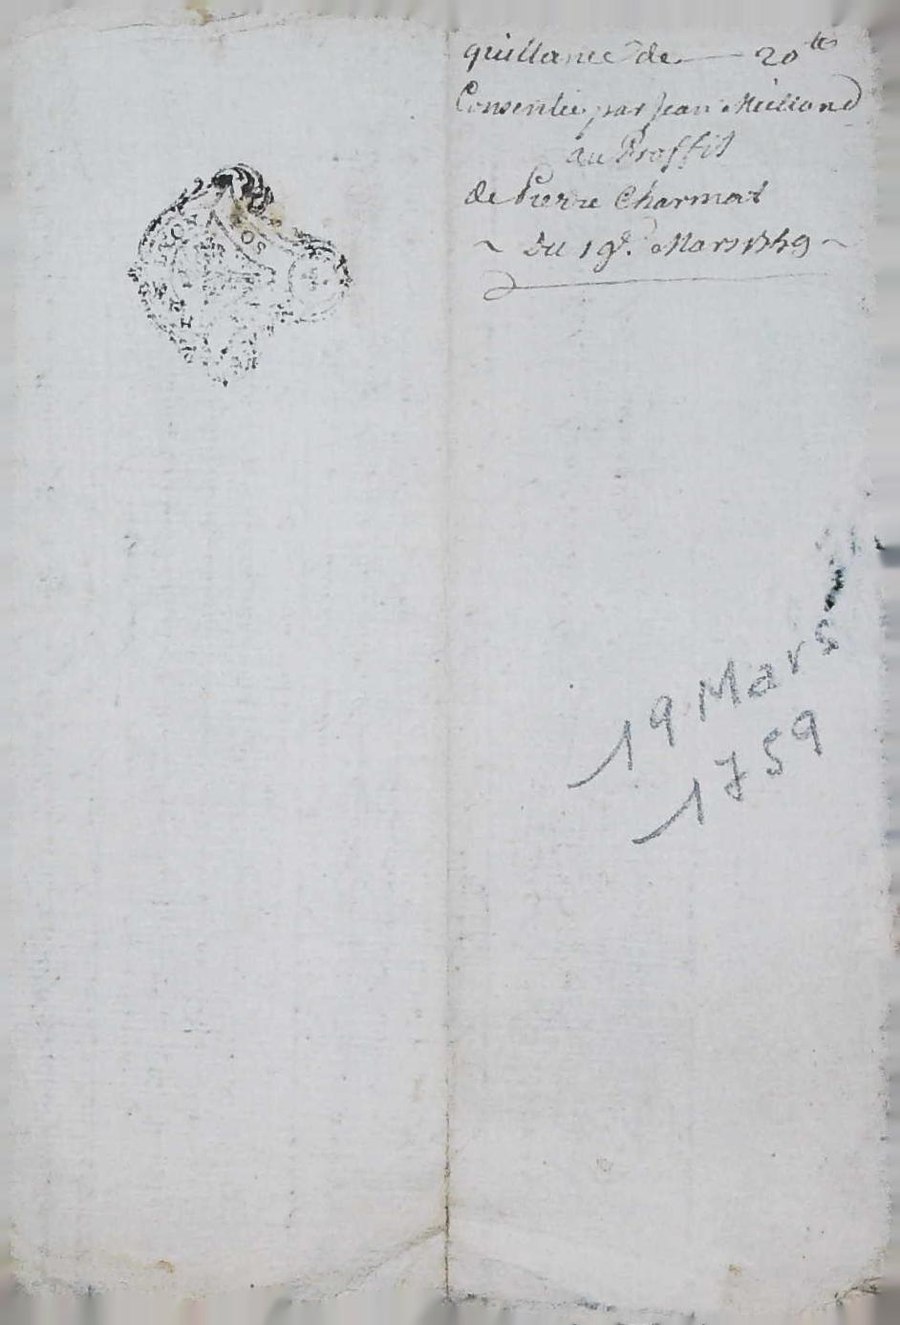 quittance de — 20 ₶
Consentie par Jean
au Proffit
de Pierre Charmat
~ Du 19e. Mars 1759 ~
19 Mars
1759